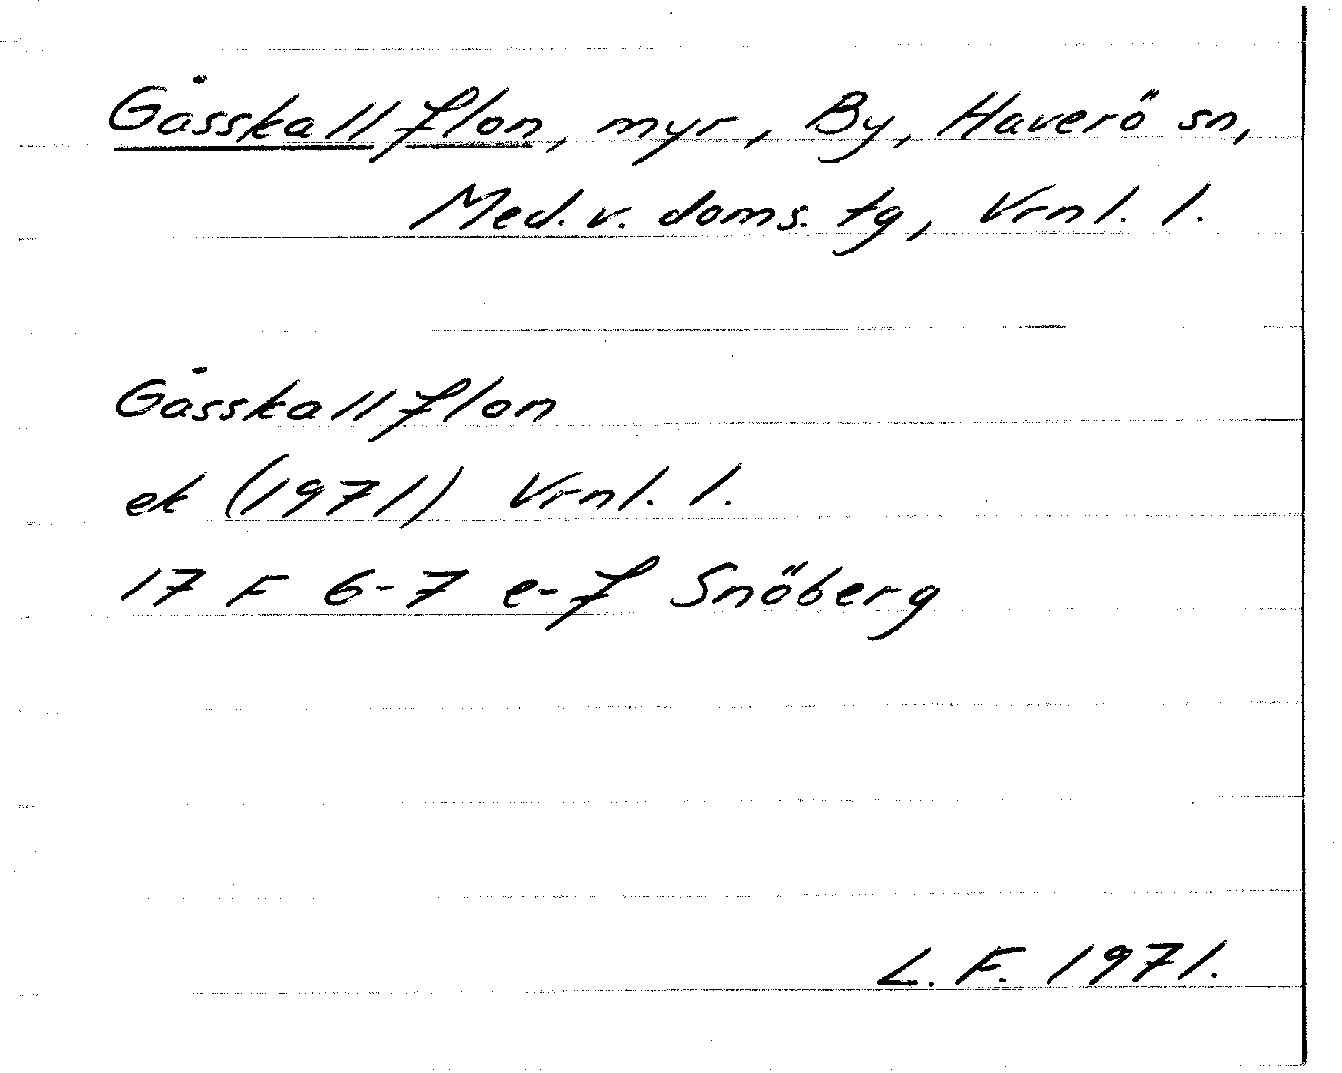 Gåsskallflon, myr, By, Haverö sn,
Med. v. doms. tg, Vrnl. l.
Gåsskallflon
ek (1971) Vrnl. l.
17 F 6-7 e-f Snöberg
L. F. 1971.